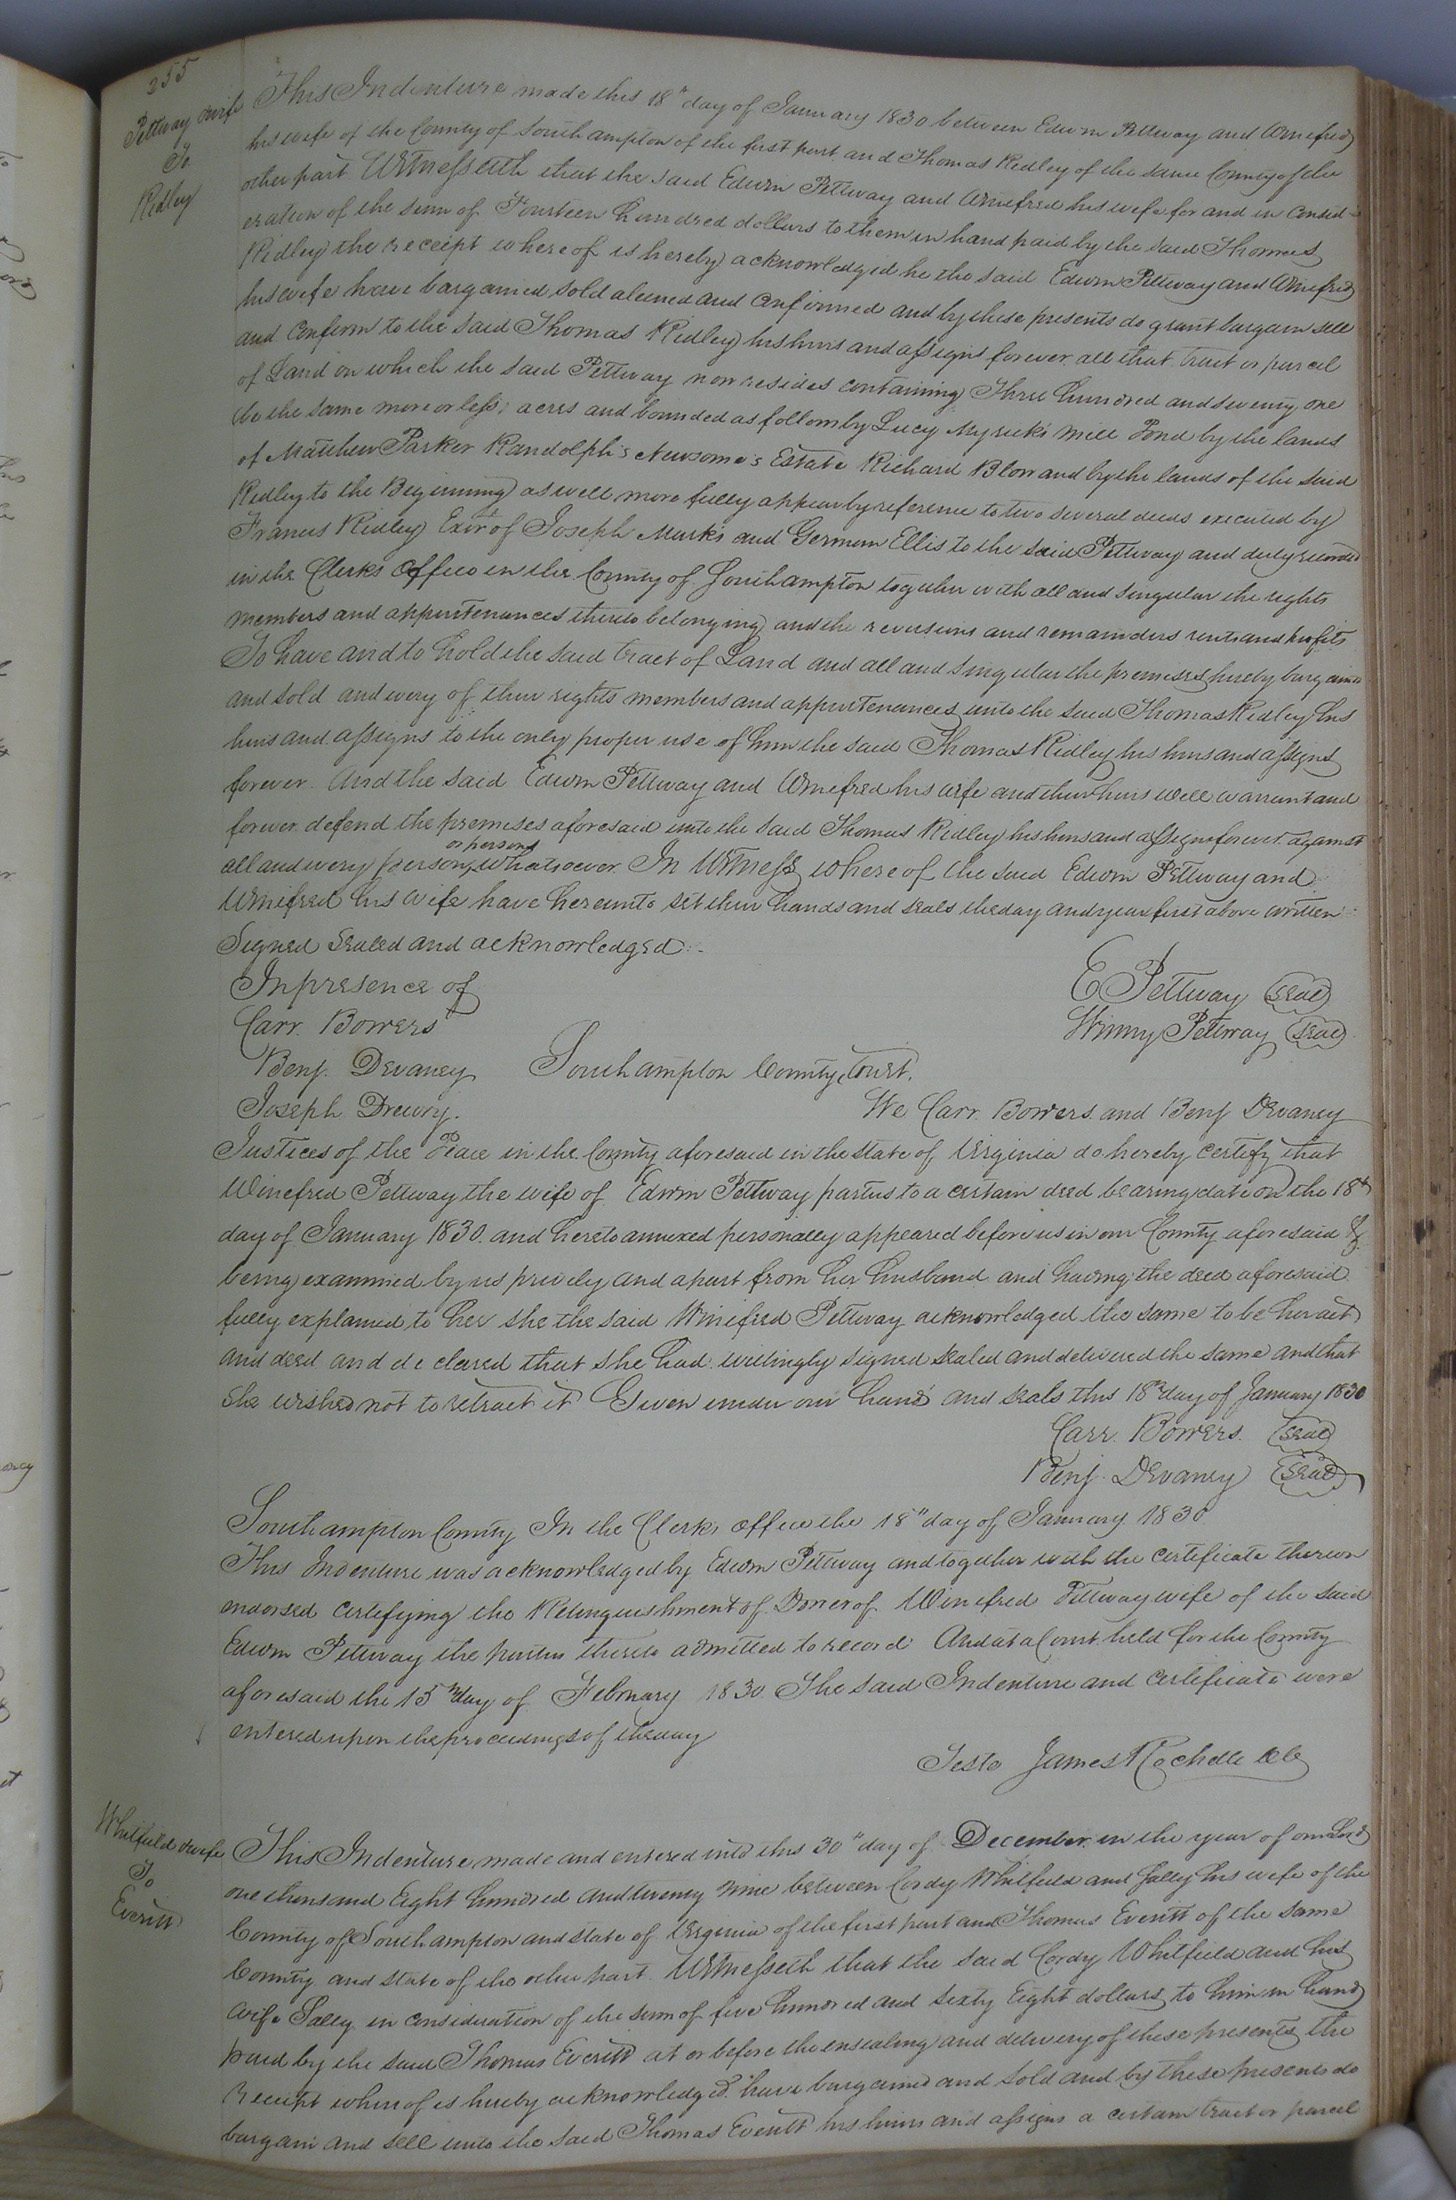 255
Pettway & wife
To
Ridley
This Indenture made this 18th day of January 1830 between Edwin Pettway and Winefred
his wife of the County of Southampton of the first part and Thomas Ridley of the same County of the
other part Witnesseth that the said Edwin Pettway and Winefred his wife for and in consid-
eration of the sum of Fourteen hundred dollars to them in hand paid by the said Thomas
Ridley the receipt whereof is hereby acknowledged he the said Edwin Pettway and Winefred
his wife have bargained sold aliened and confirmed and by these presents do grant bargain sell
and confirm to the said Thomas Ridley his heirs and assigns forever all that tract or parcel
of Land on which the said Pettway now resides containing Three hundred and seventy one
(be the same more or less) acres and bounded as follows by Lucy Myrick's Mill Pond by the lands
of Matthew Parker Randolph's Newsome's Estate Richard Blow and by the lands of the said
Ridley to the Beginning as will more fully appear by reference to two several deeds executed by
Francis Ridley Exor of Joseph Marks and German Ellis to the said Pettway and duly recorded
in the Clerks Office in the County of Southampton together with all and singular the rights
members and appurtenances thereto belonging and the reversions and remainders rents and profits
To have and to hold the said tract of Land and all and singular the premises hereby bargained
and sold and every of their rights members and appurtenances unto the said Thomas Ridley his
heirs and assigns to the only proper use of him the said Thomas Ridley his heirs and assigns
forever And the said Edwin Pettway and Winefred his wife and their heirs will warrant and
forever defend the premises aforesaid unto the said Thomas Ridley his heirs and assigns forever against
all and every person or persons whatsoever In Witness whereof the said Edwin Pettway and
Winifred his wife have hereunto set their hands and seals the day and year first above written
Signed Sealed and acknowledged
In presence of
E Pettway Seal
Carr Bowers
Winny Pettway Seal
Benj. Devaney Southampton County Court.
Joseph Drewry. We Carr Bowers and Benj Devaney
Justices of the Peace in the County aforesaid in the State of Virginia do hereby certify that
Winefred Pettway the wife of Edwin Pettway parties to a certain deed bearing date on the 18th
day of January 1830 and hereto annexed personally appeared before us in our County aforesaid &
being examined by us privily and apart from her husband and having the deed aforesaid
fully explained to her she the said Winifred Pettway acknowledged the same to be her act
and deed and declared that she had willingly signed sealed and delivered the same and that
she wished not to retract it Given under our hand and seals this 18th day of January 1830
Carr Bowers. Seal
Benj Devaney Seal
Southampton County In the Clerks office the 18th day of January 1830
This Indenture was acknowledged by Edwin Pettway and together with the certificate thereon
endorsed certifying the Relinquishment of Dower of Winefred Pettway wife of the said
Edwin Pettway the parties thereto admitted to record And at a Court held for the County
aforesaid the 15th day of February 1830 The said Indenture and certificate were
entered upon the proceedings of the day
Teste James Rochelle
Whitfield & wife
To
Everitt
This Indenture made and entered into this 30th day of December in the year of our Lord
one thousand Eight hundred and twenty nine between Cordy Whitfield and Sally his wife of the
County of Southampton and state of Virginia of the first part and Thomas Everitt of the same
County and state of the other part Witnesseth that the said Cordy Whitfield and his
wife Sally in consideration of the sum of five hundred and sixty Eight dollars to him in hand
paid by the said Thomas Everitt at or before the ensealing and delivery of these presents the
Receipt whereof is hereby acknowledged have bargained and sold and by these presents do
bargain and sell unto the said Thomas Everitt his heirs and assigns a certain tract or parcel